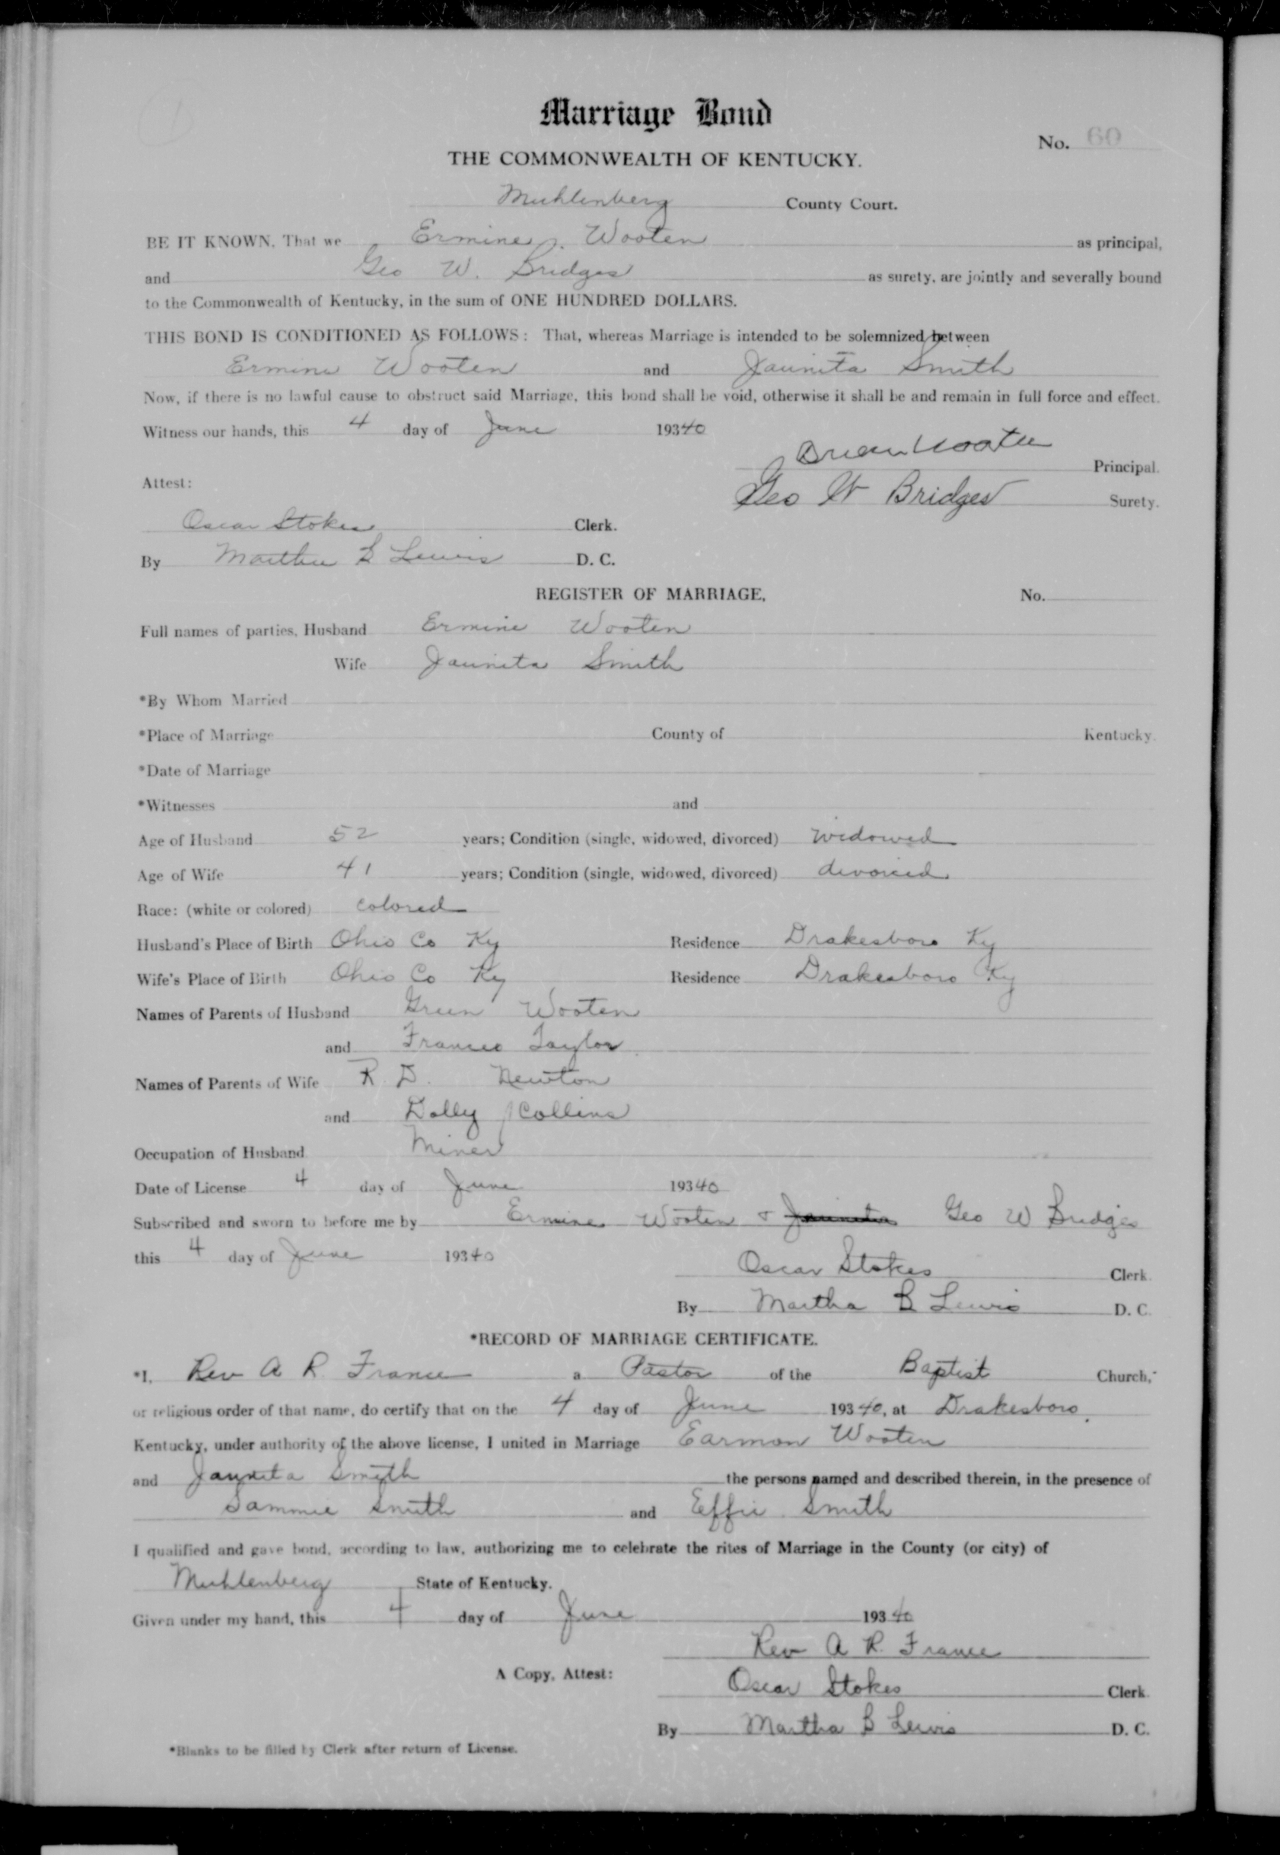 Marriage Bond
No. 60
THE COMMONWEALTH OF KENTUCKY.
Muhlenberg County Court.
BE IT KNOWN, That we Ermine Wooten as principal,
and Geo W. Bridges as surety, are jointly and severally bound
to the Commonwealth of Kentucky, in the sum of ONE HUNDRED DOLLARS.
THIS BOND IS CONDITIONED AS FOLLOWS: That, whereas Marriage is intended to be solemnized between
Ermine Wooten and Jaunita Smith
Now, if there is no lawful cause to obstruct said Marriage, this bond shall be void, otherwise it shall be and remain in full force and effect.
Witness our hands, this 4 day of June 19340
Wooten Principal.
Attest: Geo W Bridges Surety.
Oscar Stokes Clerk.
By Martha B Lewis D. C.
REGISTER OF MARRIAGE, No.
Full names of parties, Husband Ermine Wooten
Wife Jaunita Smith
*By Whom Married
*Place of Marriage County of Kentucky.
*Date of Marriage
*Witnesses and
Age of Husband 52 years; Condition (single, widowed, divorced) widowed
Age of Wife 41 years; Condition (single, widowed, divorced) divorced
Race: (white or colored) colored
Husband's Place of Birth Ohio Co Ky Residence Drakesboro Ky
Wife's Place of Birth Ohio Co Ky Residence Drakesboro Ky
Names of Parents of Husband Green Wooten
and Frances Taylor
Names of Parents of Wife R D. Newton
and Dolly Collins
Occupation of Husband Miner
Date of License 4 day of June 19340
Subscribed and sworn to before me by Ermine Wooten & Jaunita Geo W Bridges
this 4 day of June 19340
Oscar Stokes Clerk.
By Martha B Lewis D. C.
*RECORD OF MARRIAGE CERTIFICATE.
*I, Rev A R. France a Pastor of the Baptist Church,
or religious order of that name, do certify that on the 4 day of June 19340, at Drakesboro,
Kentucky, under authority of the above license, I united in Marriage Earmon Wooten
and Jaunita Smith the persons named and described therein, in the presence of
Sammie Smith and Effie Smith
I qualified and gave bond, according to law, authorizing me to celebrate the rites of Marriage in the County (or city) of
Muhlenberg State of Kentucky.
Given under my hand, this 4 day of June 19340
Rev A R. France
A Copy, Attest: Oscar Stokes Clerk.
By Martha B Lewis D. C.
*Blanks to be filled by Clerk after return of License.